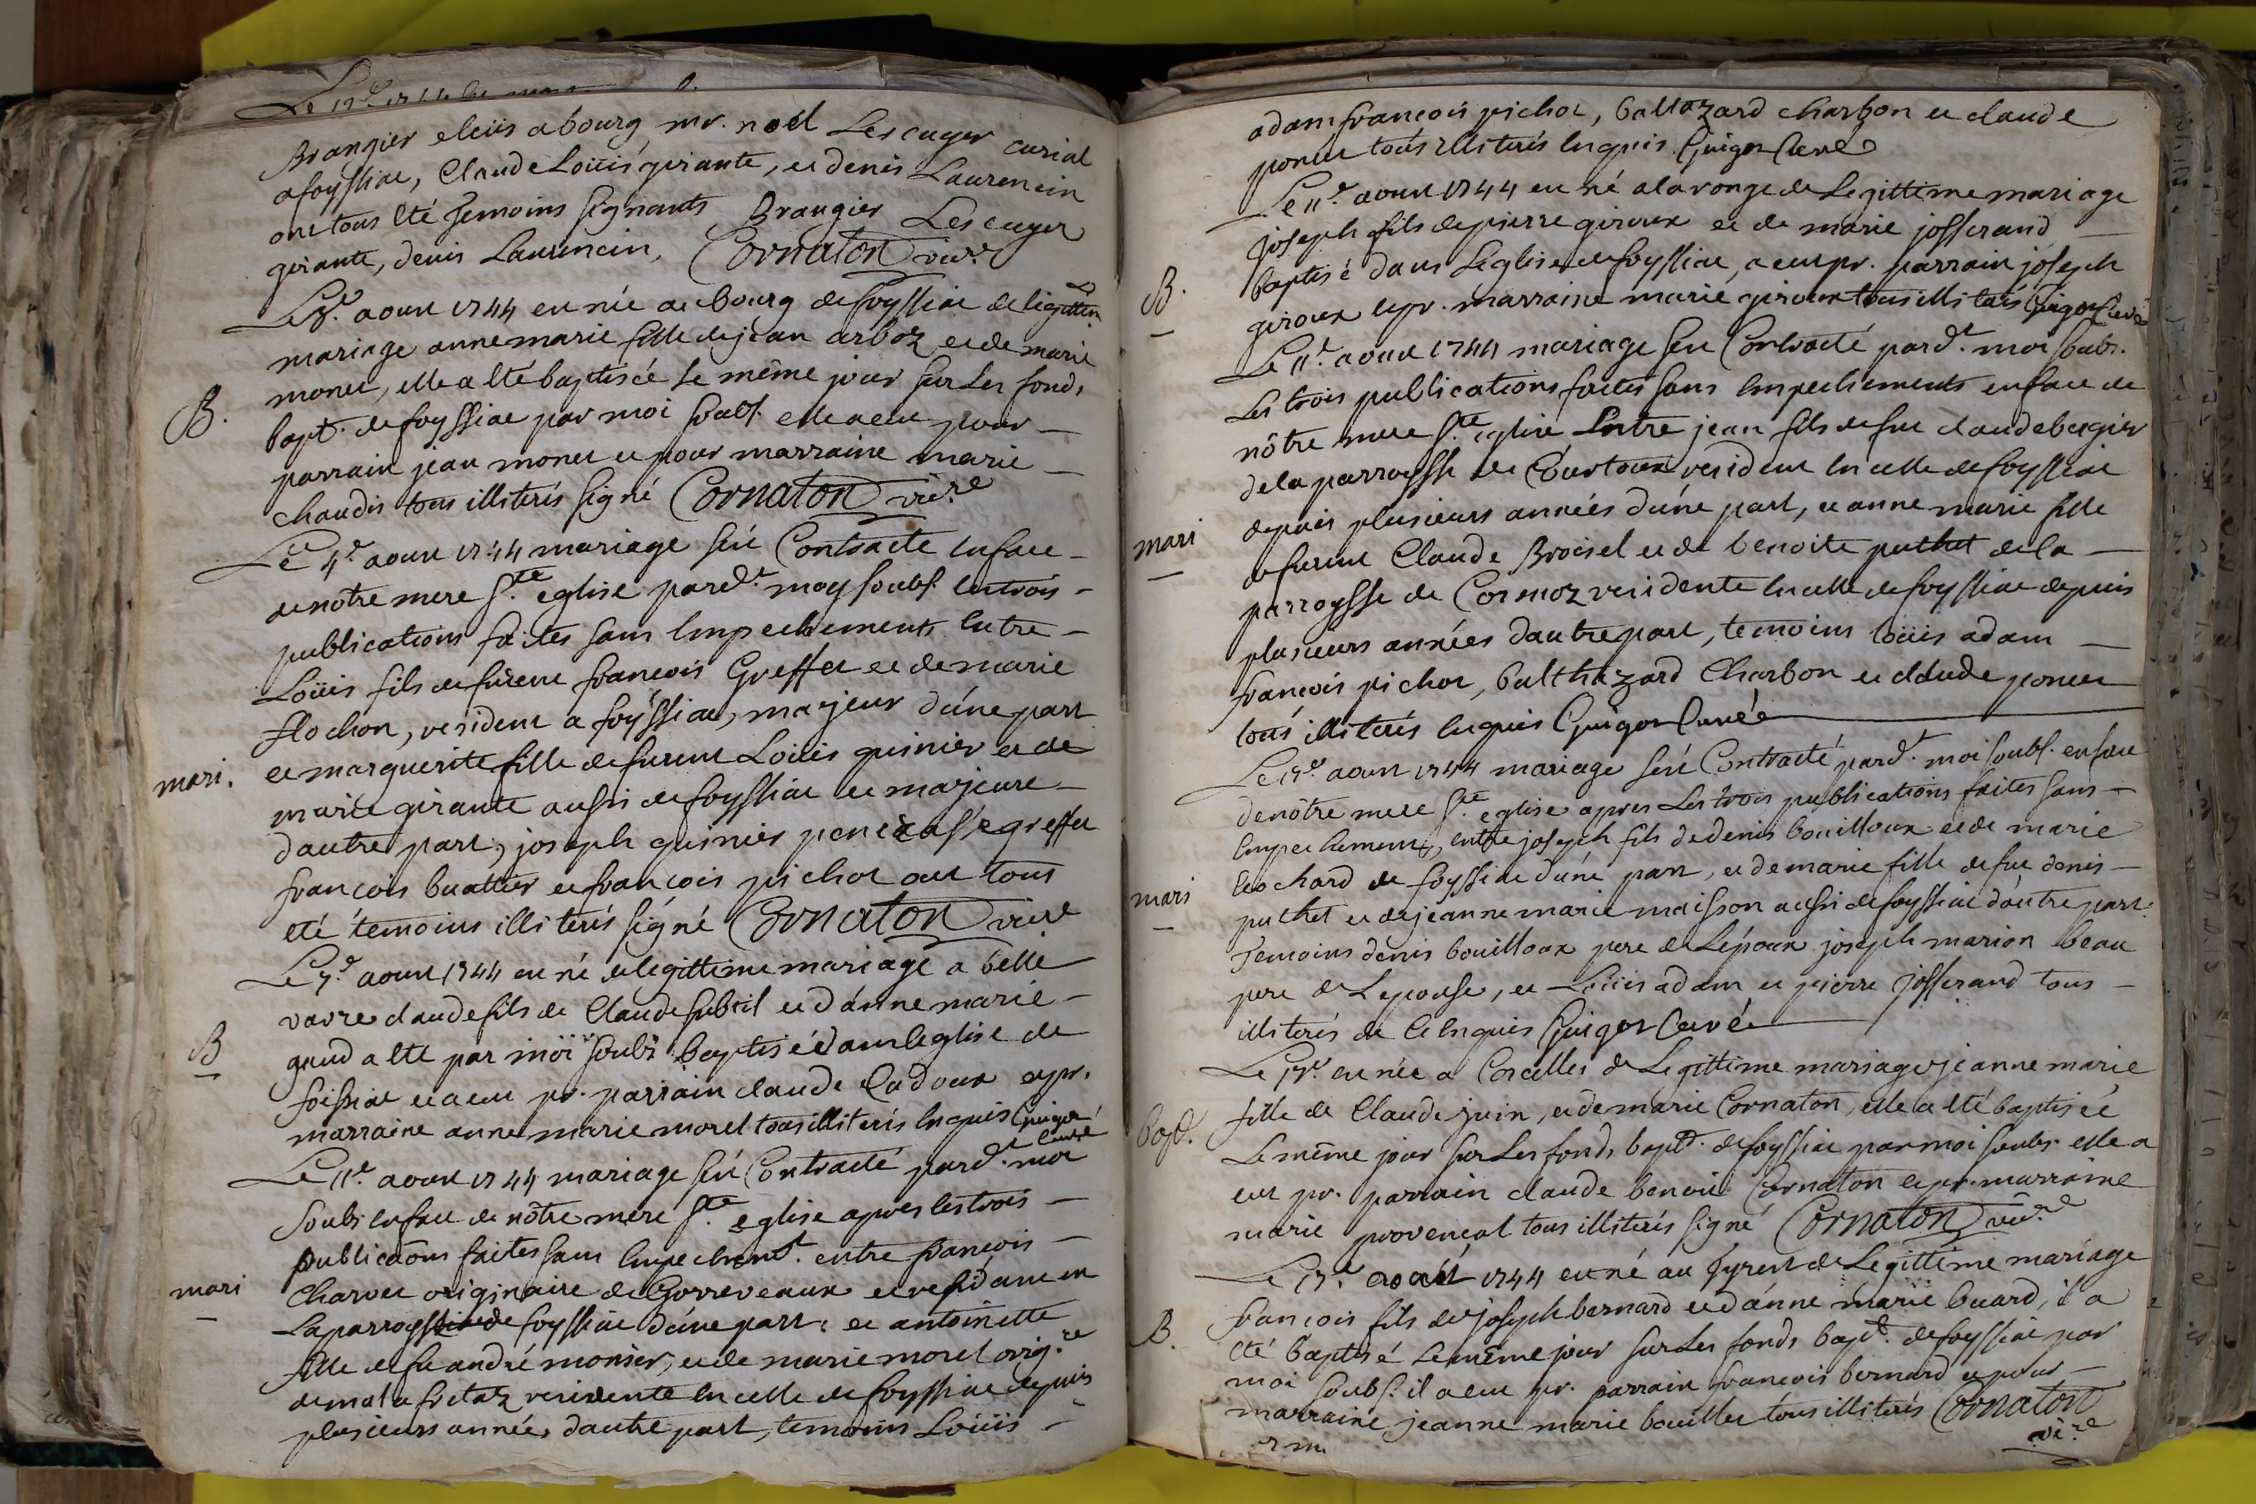 Brangier eleüs a bourg mr. noël Lescuyer curial
a foyssiac, Claude Loüis girante, et denis Laurencin
ont tous été temoins signants Brangier Lescuyer
girante, denis Laurencin, Cornaton vicre
Le aout 1744 est née au bourg de foyssiac de legittim
mariage anne marie fille de jean arboz et de marie
monet, elle a été baptiseé le même jour sur Les fonds
B. bapt. de foyssiac par moi soubs. elle a eut pour
parrain jean monet et pour marraine marie
chaudis tous illiterés signé Cornaton vicre
Le 4e aout 1744 mariage fut Contracte en face
de nôtre mere ste eglise pardt moy soubs. les trois
publications faites sans Empechements Entre
Loüis fils de furent françois Greffet et de marie
flochon, resident a foyssiac, majeur dúne part
mari. et marguerite fille de furent Loüis guinier et de
marie girante aussi de foyssiac et majeure
dautre part, joseph guinier greffet
françois buattier et françois pichot ont tous
eté temoins illiterés signé Cornaton vicre
Le 7e aout 1744 est né de legittime mariage a belle
vavre claude fils de Claude subtil et dánne marie
B gaud a eté par moï soubs baptisé dans leglise de
foissiac et a eut pr. parrain claude Cadoux et pr.
marraine anne marie morel tous illiterés Enquis Guigot
Curé
Le 11e aout 1744 mariage fut Contracté pardt moi
soubs en face de nôtre mere ste eglise apres les trois
publicaons faites sans Empechemt. entre françois
mari Charvet originaire de Gorreveaux et residant en
La parroysse de foyssiac dúne part, et antoinette
fille de fu andré monier, et de marie morel orig.re
de malafretaz residente En celle de foyssiac depuis
plusieurs année, dautre part, temoins Loüis
adam françois pichot, baltazard charbon et claude
ponet tous illiterés Enquis Guigot Curé
Le 11e aout 1744 est né a la ronge de Legittime mariage
joseph fils de pierre giroux et de marie josserand
B. baptisé dans Leglise de foyssiac, a eut pr. parrain joseph
giroux et pr. marraine marie giroux tous illiterés Guigot Curé
Le 11e aout 1744 mariage fut Contracté pardt moi soubs.
Les trois publications faites sans Empechements en face de
nôtre mere ste eglise Entre jean fils de fut claude bergier
de la parroysse de Courtoux resident En celle de foyssiac
depuis plusieurs années dúne part, et anne marie fille
mari de furent Claude Broisel et de benoite puthet de la
parroysse de Cormoz residente En celle de foyssiac depuis
plusieurs années dautre part, temoins loüis adam
françois pichot, balthazard Charbon et claude ponet
tous illiterés Enquis Guigot Curé
Le aout 1744 mariage fut Contracté pardt moi soubs. en face
de nôtre mere ste eglise apres Les trois publications faites sans
Empechements, entre joseph fils de denis bouilloux et de marie
bochard de foyssiac dúne part, et de marie fille de fut denis
mari puthet et de jeanne marie maisson aussi de foyssiac dáutre part
Temoins denis bouilloux pere de Lépoux joseph marion beau
pere de Lepouse, et Loüis adam et pierre josserand tous
illiterés de ce Enquis Guigot Curé
Le est née a Corcelles de Legittime mariage jeanne marie
bapt. fille de Claude juin, et de marie Cornaton, elle a été baptiseé
Le même jour sur Les fonds bapt. de foyssiac par moi soubs. elle a
eut pr. parrain claude benoit Cornaton et pr. marraine
marie provencal tous illiterés signé Cornaton vicre
Le aoút 1744 est né au de Legittime mariage
françois fils de joseph bernard et dánne marie buard, il a
B. eté baptisé Le même jour sur Les fonds bapt. de foyssiac par
moi soubs. il a eut pr. parrain françois bernard et pour
marraine jeanne marie bouillet tous illiterés Cornaton
vicre